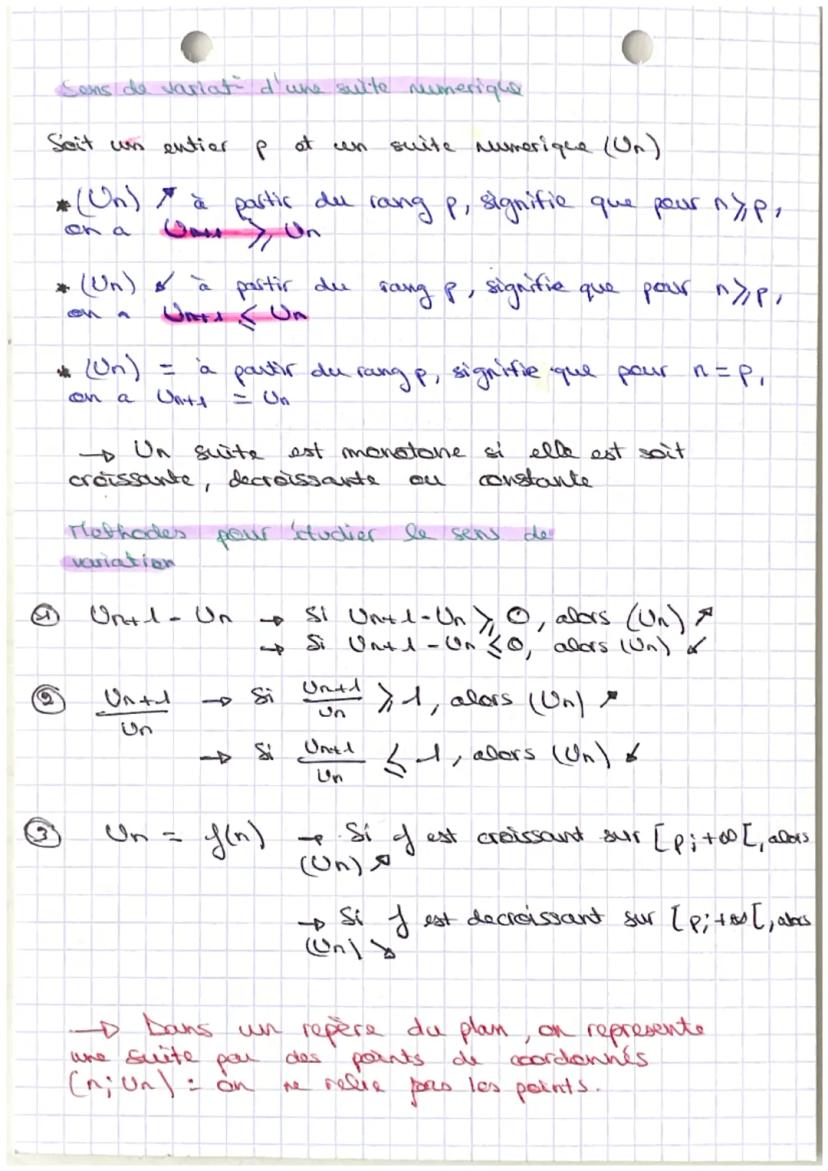 Sens de variat° d'une suite numerique
Soit un entier p et un suite numerique (Un)
* (Un) ↗ à partir du rang p, signifie que pour n ⩾ p,
on a Un+1 ⩾ Un
* (Un) ↙ à partir du rang p, signifie que pour n ⩾ p,
on a Un+1 ⩽ Un
* (Un) = à partir du rang p, signifie que pour n = p,
on a Un+1 = Un
→ Un suite est monotone si elle est soit
croissante, decroissante ou constante
Methodes pour étudier le sens de
variation
① Un+1 - Un → Si Un+1 - Un ⩾ 0, alors (Un) ↗
→ Si Un+1 - Un ⩽ 0, alors (Un) ↙
② Un+1/Un → Si Un+1/Un ⩾ 1, alors (Un) ↗
→ Si Un+1/Un ⩽ 1, alors (Un) ↙
③ Un = f(n) → Si f est croissant sur [p;+∞[, alors
(Un) ↗
→ Si f est decroissant sur [p;+∞[, alors
(Un) ↘
→ Dans un repère du plan, on represente
une suite par des points de coordonnés
(n; Un) : on ne relie pas les points.